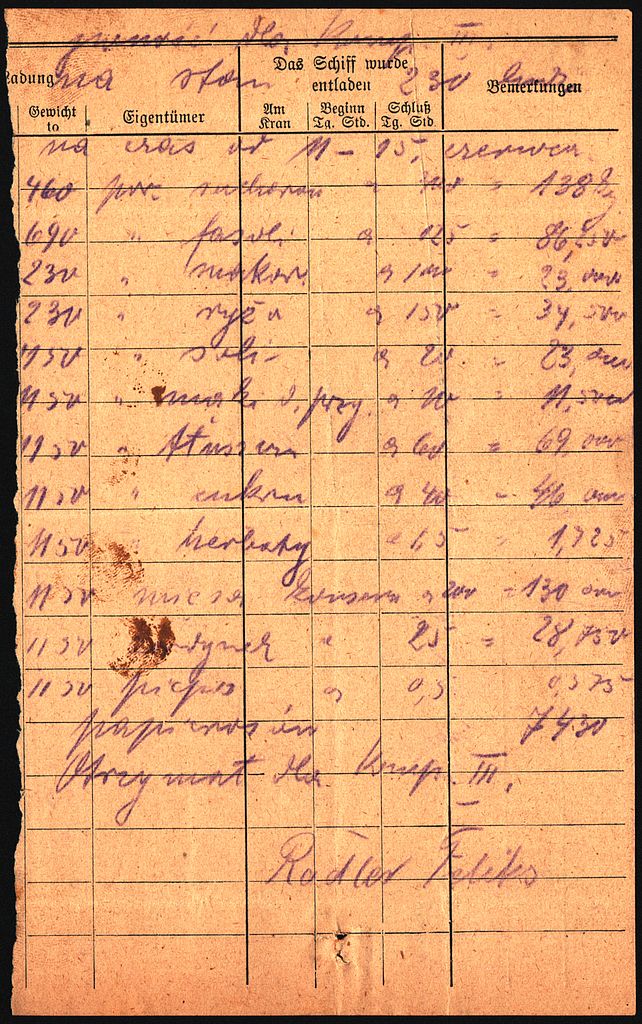 żywność dla Komp. III.
Ladung
Das Schiff wurde entladen
Bemerkungen
na stan 230 ludzi
Gewicht to
Eigentümer
Am Kran
Beginn Tg. Std.
Schluß Tg. Std.
na czas od 11 – 15. czerwca
460 por. sucharów a 300 = 138 kg
690 " fasoli a 125 = 86,250
230 " makar. a 100 = 23,000
230 " ryżu a 150 = 34,500
1150 " soli a 20 = 23,000
1150 " mąki d. przy. a 10 = 11,500
1150 " tłuszczu a 60 = 69,000
1150 " cukru a 40 = 46,000
1150 " herbaty a 1,5 = 1,725
1150 mięsa konserw a 200 = 130,000
1150 jarzynek " 25 = 28,750
1150 pieprz a 0,5 0,575
papierosów 7430
Otrzymał dla Komp. III.
Radlov Feliks